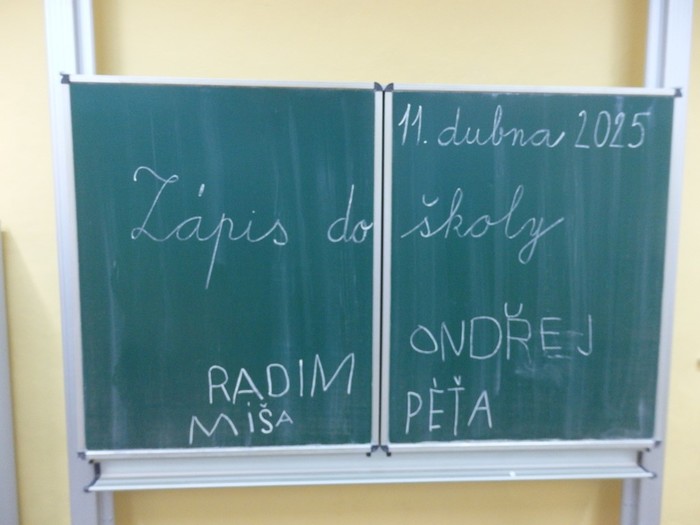 11. dubna 2025
Zápis do školy
RADIM
MiŠA
ONDŘEJ
PĚŤA